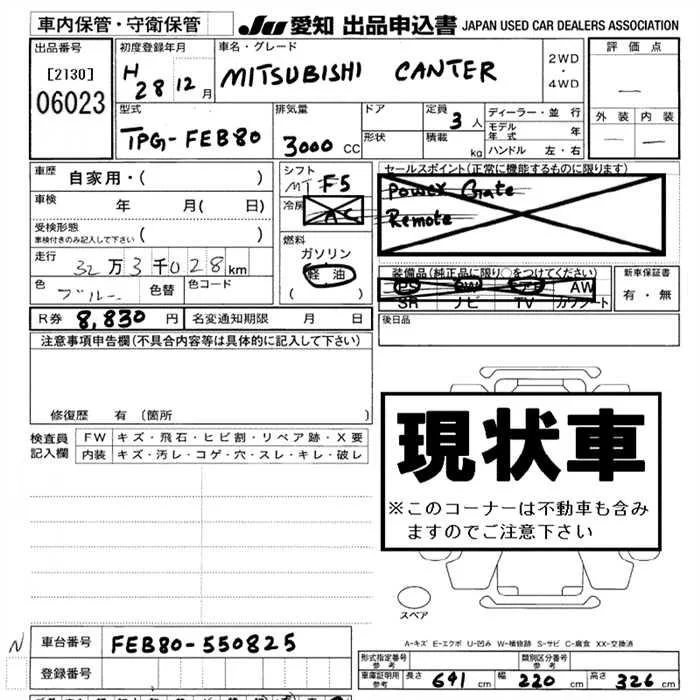 車内保管・守衛保管
JU 愛知 出品申込書 JAPAN USED CAR DEALERS ASSOCIATION
出品番号
[2130]
06023
初度登録年月
H 28 12 月
車名・グレード
MITSUBISHI CANTER
2WD
・
4WD
評価点
—
外装 内装
— —
型式
TPG-FEB80
排気量
3000 CC
ドア
形状
定員
3 人
積載
kg
ディーラー・並行
モデル年式 年
ハンドル 左・右
車歴
自家用・( )
車検
年 月( 日)
受検形態
車検付きのみ記入して下さい ( )
走行
32 万 3 千 028 km
色
ブルー
色替
色コード
シフト
MT F5
冷房
AC
燃料
ガソリン
軽油
( )
セールスポイント(正常に機能するものに限ります)
Power Gate
Remote
装備品(純正品に限り○をつけてください)
PS PW エアB AW
SR ナビ TV カワシート
新車保証書
有・無
R券 8,830 円 名変通知期限 月 日
後日品
注意事項申告欄(不具合内容等は具体的に記入して下さい)
修復歴 有 (箇所 )
検査員
記入欄
FW キズ・飛石・ヒビ割・リペア跡・X要
内装 キズ・汚レ・コゲ・穴・スレ・キレ・破レ
現状車
※このコーナーは不動車も含み
ますのでご注意下さい
スペア
A-キズ E-エクボ U-凹み W-補修跡 S-サビ C-腐食 XX-交換済
N
車台番号 FEB80-550825
登録番号
形式指定番号
参考
類別区分番号
参考
車庫証明用
参考
長さ 641 cm 幅 220 cm 高さ 326 cm